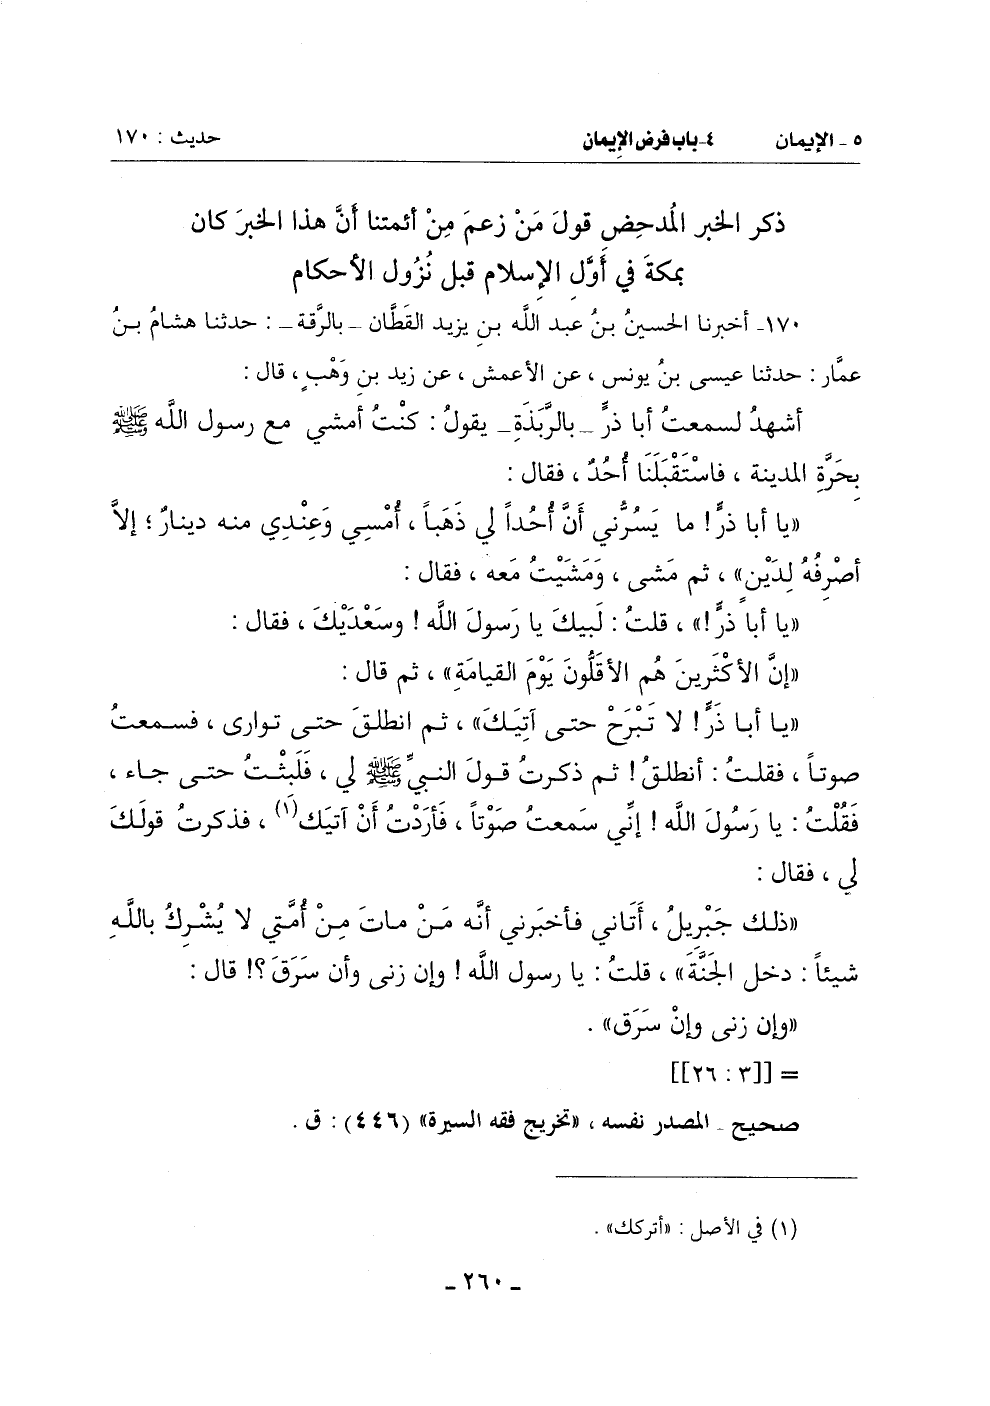 ٥ ـ الإيمان ٤ـ باب فرض الإيمان حديث : ١٧٠
ذكر الخبر المُدحِضِ قولَ مَنْ زعمَ مِنْ أئمتنا أَنَّ هذا الخبرَ كان
بمكةَ في أَوَّلِ الإسلام قبل نُزُول الأحكام
١٧٠ـ أخبرنا الحسينُ بنُ عبد اللَّه بنِ يزيد القَطَّان ـ بالرَّقة ـ : حدثنا هشامُ بنُ
عمَّار : حدثنا عيسى بنُ يونس ، عن الأعمش ، عن زيد بنِ وَهْبٍ ، قال :
أشهدُ لسمعتُ أبا ذرٍّ ـ بالرَّبَذَةِ ـ يقولُ : كنْتُ أمشي مع رسول اللَّه ﷺ
بِحَرَّةِ المدينة ، فاسْتَقْبَلَنَا أُحُدٌ ، فقال :
«يا أبا ذرٍّ! ما يَسُرُّني أَنَّ أُحُداً لي ذَهَباً ، أُمْسِي وَعِنْدِي منه دينارٌ ؛ إلاَّ
أصْرِفُهُ لِدَيْنٍ» ، ثم مَشى ، وَمَشَيْتُ مَعه ، فقال :
«يا أبا ذرٍّ!» ، قلتُ : لَبيكَ يا رَسولَ اللَّه ! وسَعْدَيْكَ ، فقال :
«إنَّ الأكْثَرِينَ هُم الأقَلُّونَ يَوْمَ القيامَةِ» ، ثم قال :
«يا أبا ذَرٍّ! لا تَبْرَحْ حتى آتِيَكَ» ، ثم انطلقَ حتى توارى ، فسمعتُ
صوتاً ، فقلتُ : أنطلقُ! ثم ذكرتُ قولَ النبيِّ ﷺ لي ، فَلَبِثْتُ حتى جاء ،
فَقُلْتُ : يا رَسُولَ اللَّه ! إنِّي سَمعتُ صَوْتاً ، فَأرَدْتُ أَنْ آتيَك(١) ، فذكرتُ قولَكَ
لي ، فقال :
«ذلك جَبْرِيلُ ، أَتَاني فأخبَرني أنَّه مَنْ ماتَ مِنْ أُمَّتي لا يُشْرِكُ باللَّهِ
شيئاً : دخل الجَنَّةَ» ، قلتُ : يا رسول اللَّه ! وإن زنى وأن سَرَقَ؟! قال :
«وإن زنى وإنْ سَرَق» .
= [[٣ : ٢٦]]
صحيح ـ المصدر نفسه ، «تخريج فقه السيرة» (٤٤٦) : ق .
(١) في الأصل : «أتركك» .
ـ ٢٦٠ ـ